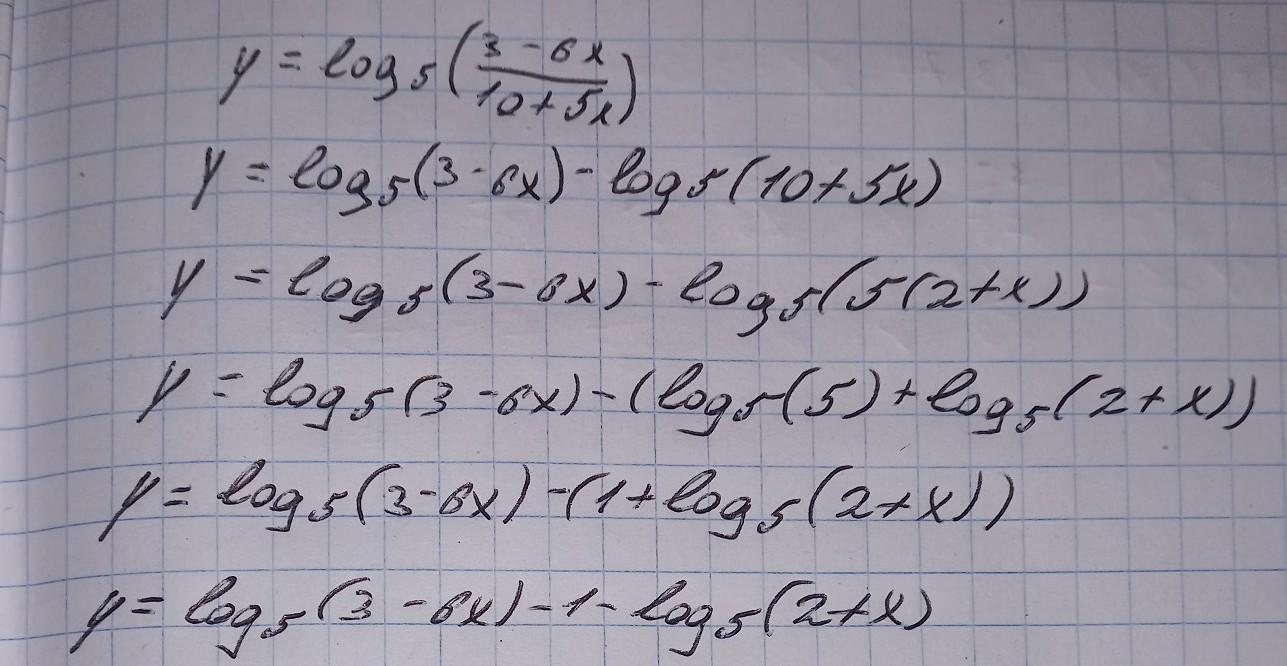 y = log₅((3 - 6x)/(10 + 5x))
y = log₅(3 - 6x) - log₅(10 + 5x)
y = log₅(3 - 6x) - log₅(5(2 + x))
y = log₅(3 - 6x) - (log₅(5) + log₅(2 + x))
y = log₅(3 - 6x) - (1 + log₅(2 + x))
y = log₅(3 - 6x) - 1 - log₅(2 + x)